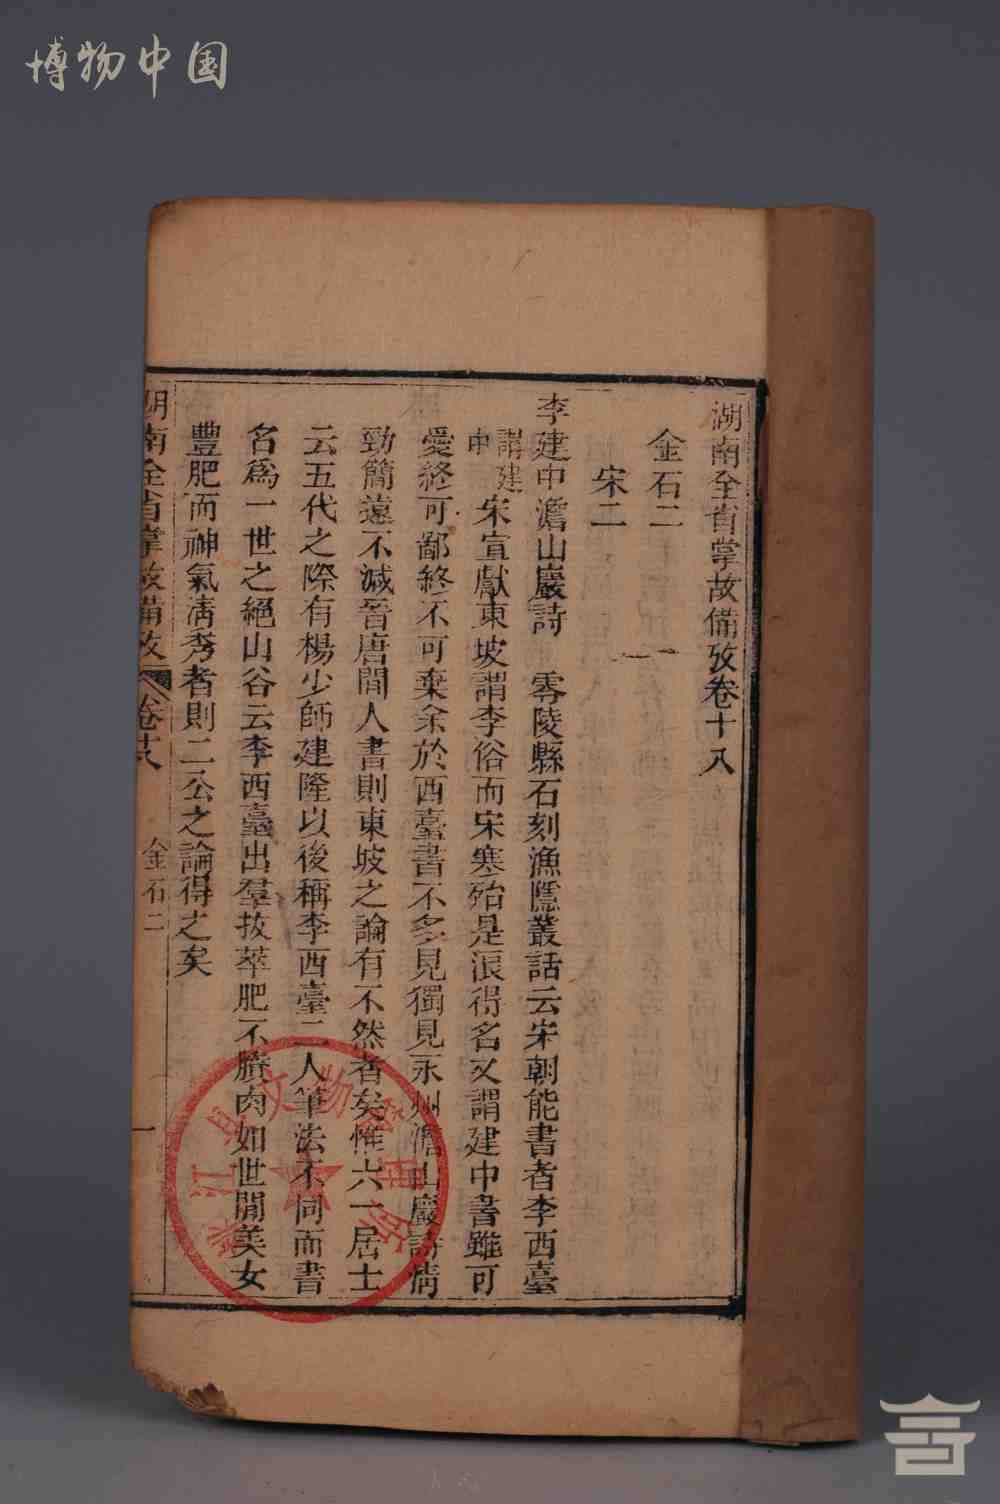 博物中国
湖南全省掌故備攷卷十八
金石二
宋二
李建中澹山巖詩 零陵縣石刻漁隱叢話云宋朝能書者李西臺
謂建中宋宣獻東坡謂李俗而宋寒殆是浪得名又謂建中書雖可
愛終可鄙終不可棄余於西臺書不多見獨見永州澹山巖詩情
勁簡遠不減晉唐間人書則東坡之論有不然者矣惟六一居士
云五代之際有楊少師建隆以後稱李西臺二人筆法不同而書
名爲一世之絕山谷云李西臺出羣拔萃肥不臢肉如世間美女
豐肥而神氣清秀者則二公之論得之矣
湖南全省掌故備攷 卷十八 金石二 一
江縣文物管理